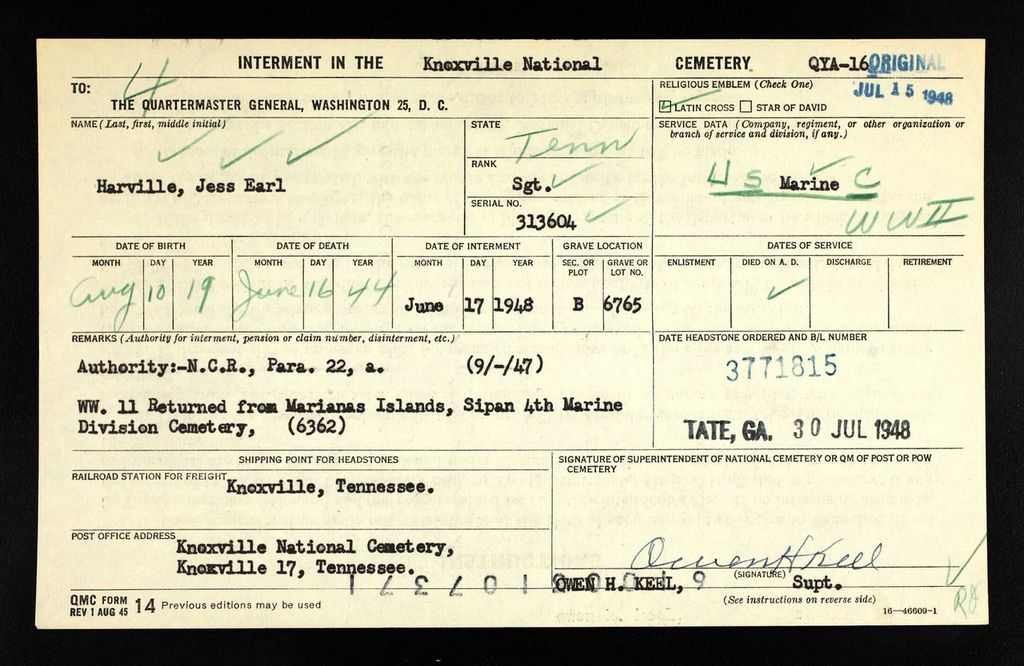 INTERMENT IN THE Knoxville National CEMETERY QYA-16 ORIGINAL
JUL 15 1948
TO:
4
THE QUARTERMASTER GENERAL, WASHINGTON 25, D. C.
RELIGIOUS EMBLEM (Check One)
LATIN CROSS STAR OF DAVID
NAME (Last, first, middle initial)
Harville, Jess Earl
STATE
Tenn
RANK
Sgt.
SERIAL NO.
313604
SERVICE DATA (Company, regiment, or other organization or
branch of service and division, if any.)
U S Marine C
WW II
DATE OF BIRTH DATE OF DEATH DATE OF INTERMENT GRAVE LOCATION DATES OF SERVICE
MONTH DAY YEAR MONTH DAY YEAR MONTH DAY YEAR SEC. OR PLOT GRAVE OR LOT NO. ENLISTMENT DIED ON A. D. DISCHARGE RETIREMENT
Aug 10 19 June 16 44 June 17 1948 B 6765
REMARKS (Authority for interment, pension or claim number, disinterment, etc.)
Authority:-N.C.R., Para. 22, a. (9/-/47)
WW. 11 Returned from Marianas Islands, Sipan 4th Marine
Division Cemetery, (6362)
DATE HEADSTONE ORDERED AND B/L NUMBER
3771815
TATE, GA. 30 JUL 1948
SHIPPING POINT FOR HEADSTONES
RAILROAD STATION FOR FREIGHT
Knoxville, Tennessee.
POST OFFICE ADDRESS
Knoxville National Cemetery,
Knoxville 17, Tennessee.
SIGNATURE OF SUPERINTENDENT OF NATIONAL CEMETERY OR QM OF POST OR POW
CEMETERY
Owen H Keel
OWEN H. KEEL, (SIGNATURE) Supt.
(See instructions on reverse side)
QMC FORM
REV 1 AUG 45 14 Previous editions may be used
16—46609-1